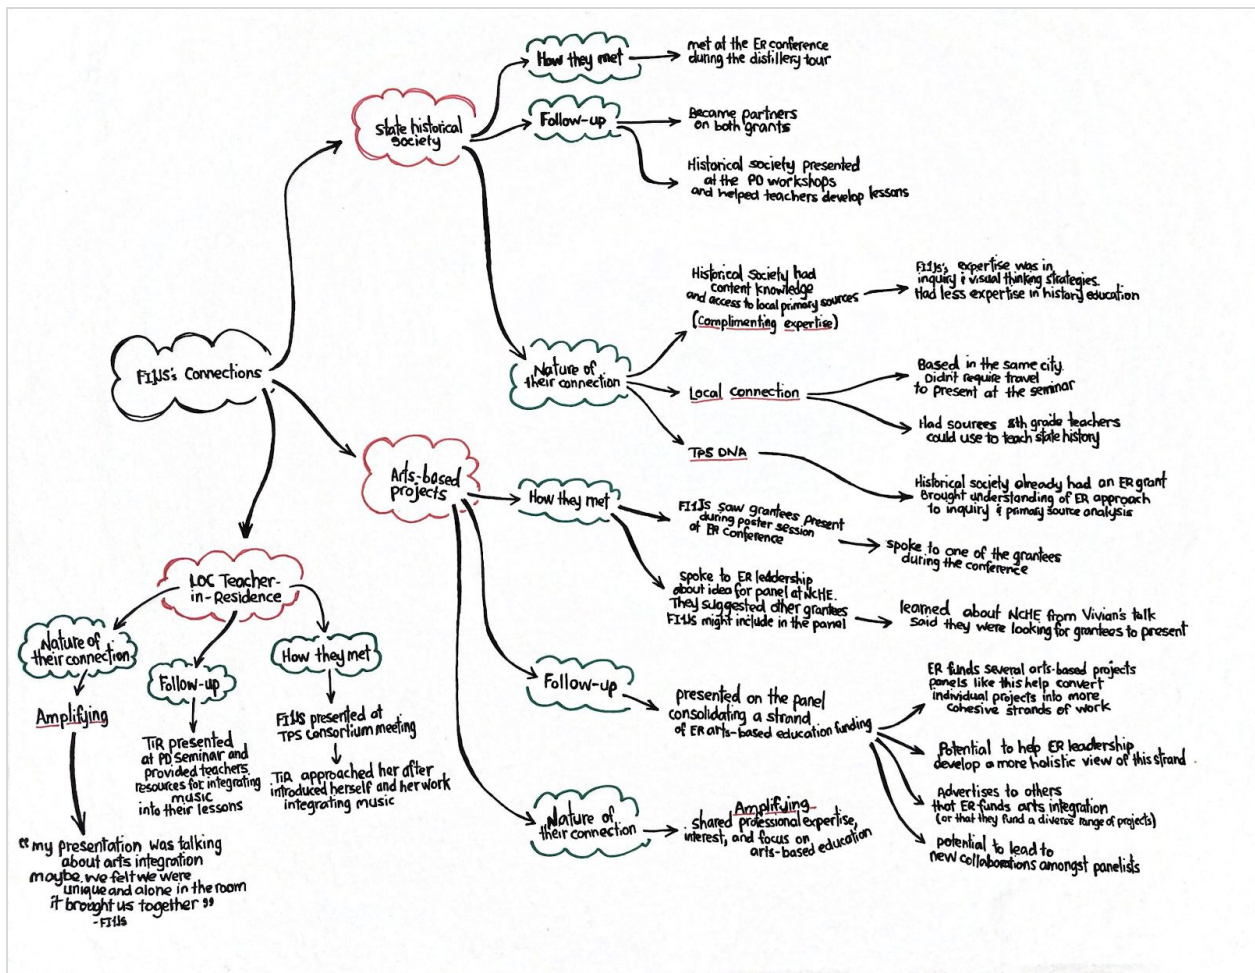 FI1JS's Connections
State historical
society
How they met
met at the ER conference
during the distillery tour
Follow-up
Became partners
on both grants
Historical society presented
at the PD workshops
and helped teachers develop lessons
Nature of
their connection
Historical Society had
content knowledge
and access to local primary sources
(Complimenting expertise)
FI1JS's, expertise was in
inquiry & visual thinking strategies.
Had less expertise in history education
Local connection
Based in the same city.
Didnt require travel
to present at the seminar
Had sources 8th grade teachers
could use to teach state history
TPS DNA
Historical society already had an ER grant
Brought understanding of ER approach
to inquiry & primary source analysis
Arts-based
projects
How they met
FI1JS saw grantees present
during poster session
at ER Conference
spoke to one of the grantees
during the conference
spoke to ER leadership
about idea for panel at NCHE.
They suggested other grantees
FI1JS might include in the panel
learned about NCHE from Vivian's talk
said they were looking for grantees to present
Follow-up
presented on the panel
consolidating a strand
of ER arts-based education funding
ER funds several arts-based projects
panels like this help convert
individual projects into more,
cohesive strands of work
Potential to help ER leadership
develop a more holistic view of this strand
Advertises to others
that ER funds arts integration
(or that they fund a diverse range of projects)
potential to lead to
new collaborations amongst panelists
Nature of
their connection
Amplifying
shared professional expertise,
interest, and focus on
arts-based education
LOC Teacher-
in-Residence
Nature of
their connection
Amplifying
"my presentation was talking
about arts integration
maybe, we felt we were
unique and alone in the room
it brought us together"
-FI1JS
Follow-up
TiR presented
at PD seminar and
provided teachers
resources for integrating
music
into their lessons
How they met
FI1JS presented at
TPS consortium meeting
TiR approached her after
introduced herself and her work
integrating music